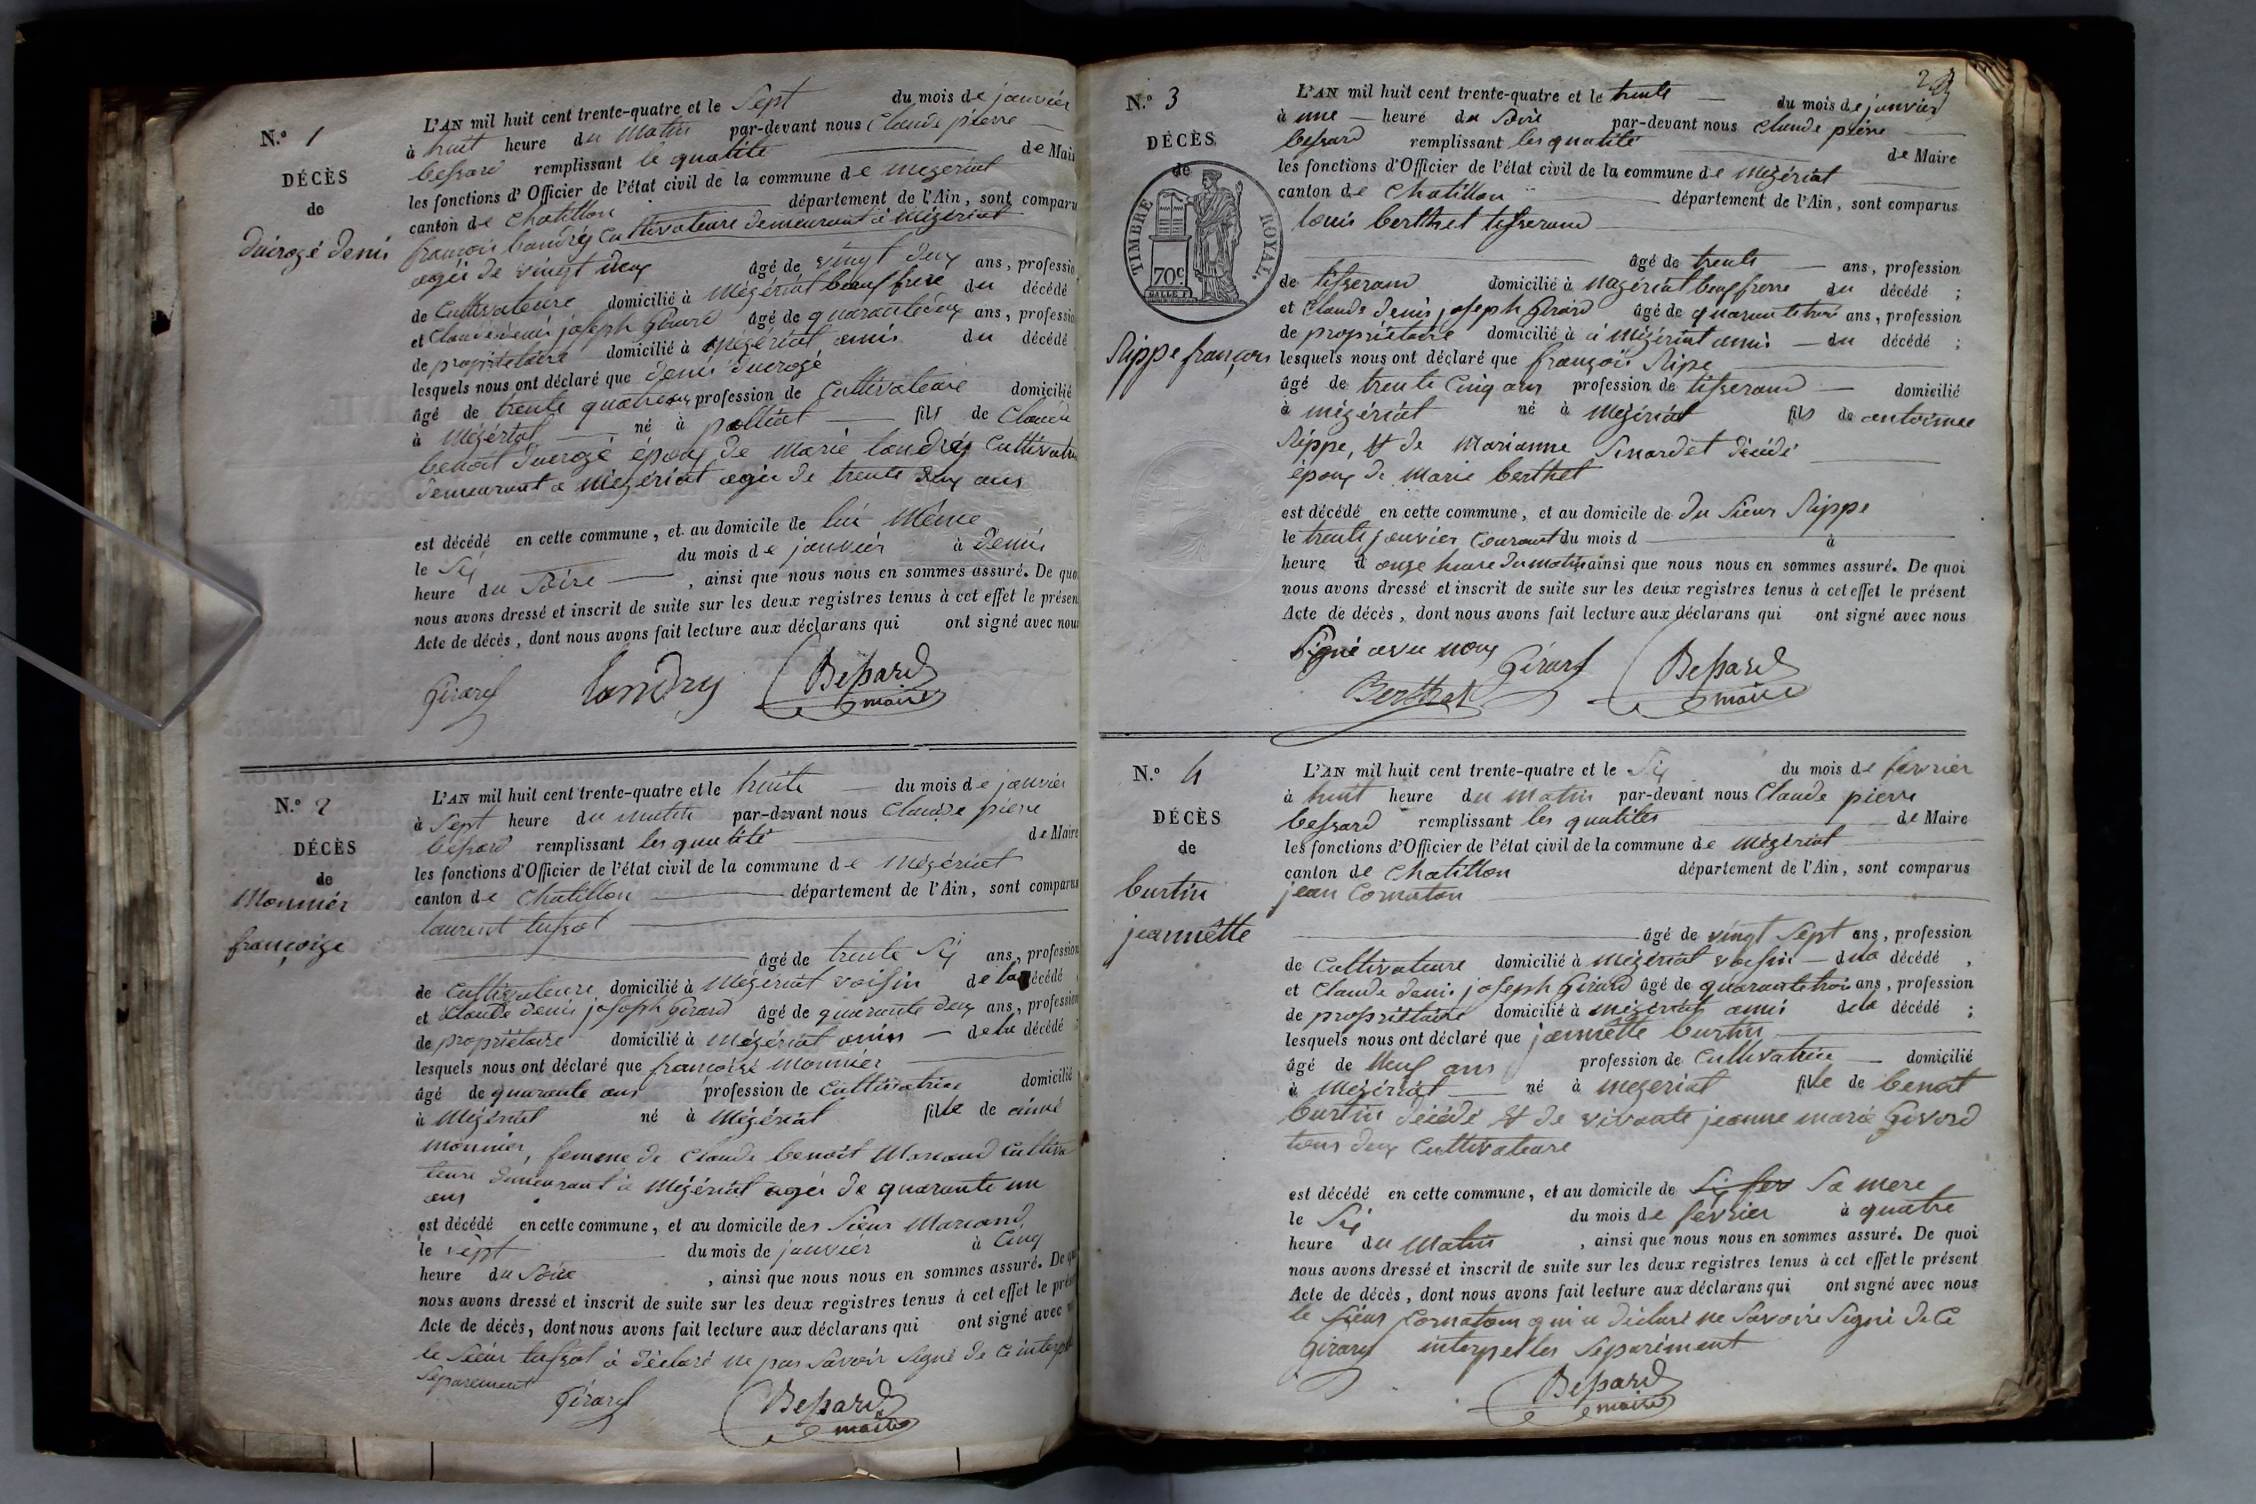 N.º 1
DÉCÈS
de
ducrozé denis
L'AN mil huit cent trente-quatre et le Sept du mois de janvier
à huit heure du Matin par-devant nous Claude pierre
bessard remplissant le qualité de Mair
les fonctions d'Officier de l'état civil de la commune de mezeriat
canton de Chatillon département de l'Ain, sont comparu
françois landrÿ Cultivateure demeurant à mézériat
agée de vingt deux âgé de vingt deux ans, professio
de Cultivateure domicilié à Mézériat beauffrere du décédé
et Claude denis joseph Girard âgé de quarante deux ans, professio
de propriétaire domicilié à mézériat amis du décédé
lesquels nous ont déclaré que denis ducrozé
âgé de trente quatre ans profession de Cultivateure domicilié
à Mézériat né à polliat fils de Claude
benoit ducrozé époux de Marie landrÿ Cultivatri
demeurant a mézériat agée de trente deux ans
est décédé en cette commune, et au domicile de lui Même
le Six du mois de janvier à demis
heure du Soire, ainsi que nous nous en sommes assuré. De quoi
nous avons dressé et inscrit de suite sur les deux registres tenus à cet effet le présen
Acte de décès, dont nous avons fait lecture aux déclarans qui ont signé avec nous
Girard landry Bessard
maire
N.º 2
DÉCÈS
de
Monnier
françoize
L'AN mil huit cent trente-quatre et le huite du mois de janvier
à Sept heure du matin par-devant nous Claude pierre
bessard remplissant les qualité de Maire
les fonctions d'Officier de l'état civil de la commune de mézériat
canton de Chatillon département de l'Ain, sont comparus
laurent tussot
âgé de trente Six ans, profession
de Cultivateure domicilié à Mézériat voisin de la décédé
et Claude denis joseph Girard âgé de quarante deux ans, profession
de propriétaire domicilié à Mézériat amis de la décédé
lesquels nous ont déclaré que françoise monnier
âgé de quarante ans profession de Cultivatrice domicilié
à Mézériat né à Mézériat fille de aimé
monnier, femme de Claude benoit Morand Cultiva
teure demeurant à Mézériat agée de quarante un
ans
est décédé en cette commune, et au domicile des Sieur Morand
le Sept du mois de janvier à Cinq
heure du Soire, ainsi que nous nous en sommes assuré. De qu
nous avons dressé et inscrit de suite sur les deux registres tenus à cet effet le prés
Acte de décès, dont nous avons fait lecture aux déclarans qui ont signé avec n
le Sieur tussot à déclaré ne pas Savoir Signé de Ce interpel
Séparement
Girard Bessard
maire
N.º 3
DÉCÈS
de
TIMBRE ROYAL
70c
Rippe françois
L'AN mil huit cent trente-quatre et le trente du mois de janvier
à une heure du Soire par-devant nous Claude pierre
bessard remplissant les qualité de Maire
les fonctions d'Officier de l'état civil de la commune de mézériat
canton de Chatillon département de l'Ain, sont comparus
louis berthet tisserand
âgé de trente ans, profession
de tisserand domicilié à mézériat beaufrere du décédé ;
et Claude denis joseph Girard âgé de quarante trois ans, profession
de propriétaire domicilié à à mézériat amis du décédé ;
lesquels nous ont déclaré que françois Ripe
âgé de trente Cinq ans profession de tisserand domicilié
à mézériat né à Mézériat fils de antoinee
Rippe, & de Marianne Sinardet décédé
époux de Marie berthet
est décédé en cette commune, et au domicile de du Sieur Rippe
le trente janvier Courant du mois d à
heure à onze heure du matin ainsi que nous nous en sommes assuré. De quoi
nous avons dressé et inscrit de suite sur les deux registres tenus à cet effet le présent
Acte de décès, dont nous avons fait lecture aux déclarans qui ont signé avec nous
Signé avec nous
Berthet Girard Bessard
maire
N.º 4
DÉCÈS
de
burtin
jeannette
L'AN mil huit cent trente-quatre et le Six du mois de fevrier
à huit heure du matin par-devant nous Claude pierre
bessard remplissant les qualités de Maire
les fonctions d'Officier de l'état civil de la commune de mézériat
canton de Chatillon département de l'Ain, sont comparus
jean Cornaton
âgé de vingt Sept ans, profession
de Cultivateure domicilié à mézériat voisin dela décédé ,
et Claude denis joseph Girard âgé de quarante trois ans, profession
de propriétaire domicilié à mézériat amis dela décédé ;
lesquels nous ont déclaré que jeannette burtin
âgé de Neuf ans profession de Cultivatrice domicilié
à Mézériat né à mezeriat fille de benoit
burtin décédé & de vivante jeanne marie Givord
tous deux Cultivateure
est décédé en cette commune, et au domicile de Six fev Sa mere
le Six du mois de fevrier à quatre
heure du Matin, ainsi que nous nous en sommes assuré. De quoi
nous avons dressé et inscrit de suite sur les deux registres tenus à cet effet le présent
Acte de décès, dont nous avons fait lecture aux déclarans qui ont signé avec nous
le Sieur Cornaton qui a déclaré ne Savoire Signé de Ce
Girard interpelles Séparément
Bessard
maire